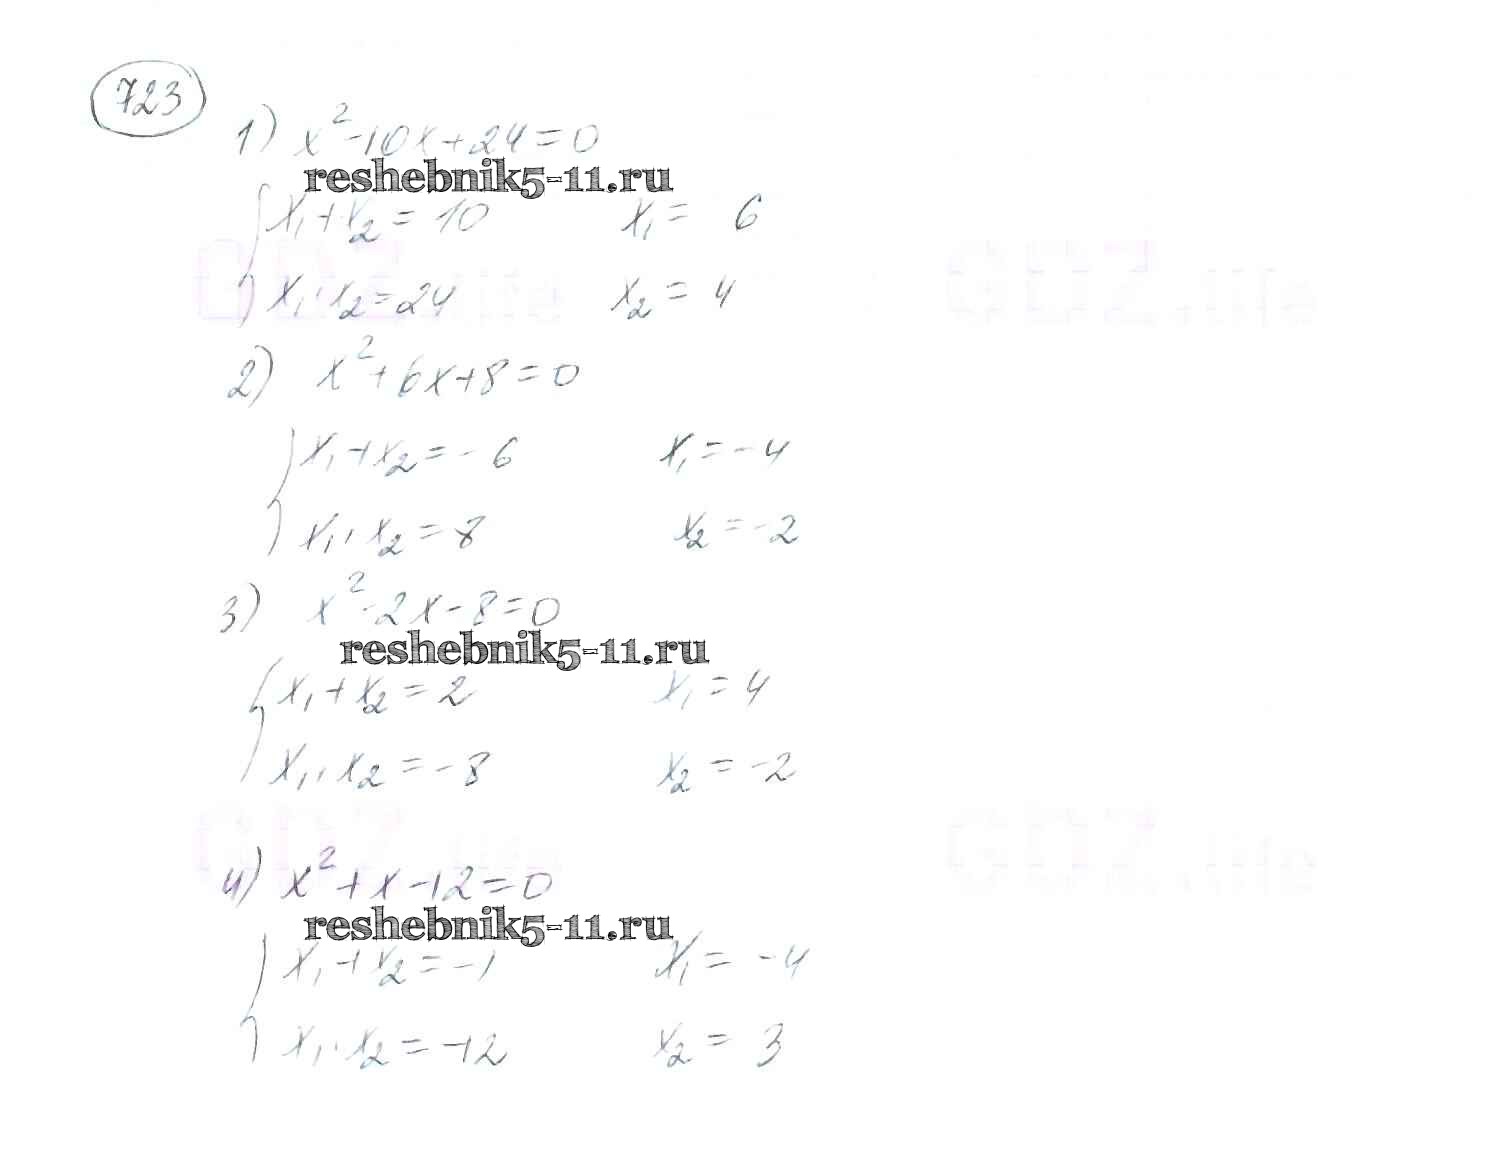 723
1) x²-10x+24=0
reshebnik5-11.ru
{x₁+x₂=10 x₁= 6
x₁·x₂=24 x₂=4
GDZ.life GDZ.life
2) x²+6x+8=0
{x₁+x₂=-6 x₁=-4
x₁·x₂=8 x₂=-2
3) x²-2x-8=0
reshebnik5-11.ru
{x₁+x₂=2 x₁=4
x₁·x₂=-8 x₂=-2
GDZ.life GDZ.life
4) x²+x-12=0
reshebnik5-11.ru
{x₁+x₂=-1 x₁=-4
x₁·x₂=-12 x₂=3